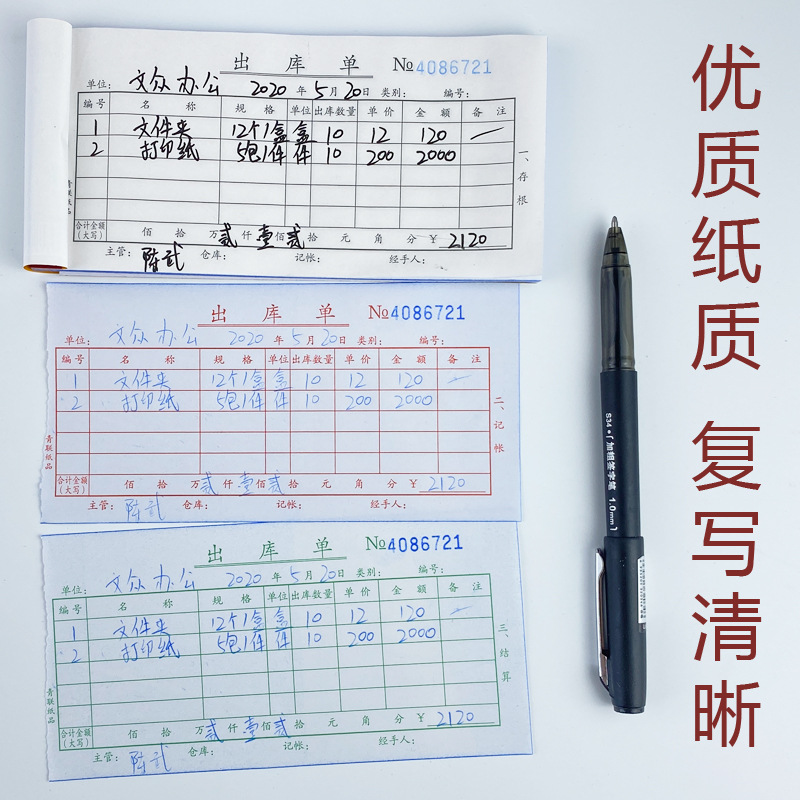 出 库 单 №4086721
单位：文众办公 2020 年 5 月 20 日 类别： 编号：
编号 名 称 规 格 单位 出库数量 单 价 金 额 备 注
1 文件夹 12个1盒 盒 10 12 120 —
2 打印纸 5包1件 件 10 200 2000
一、存根
青联纸品
合计金额（大写） 佰 拾 万 贰 仟 壹 佰 贰 拾 元 角 分 ￥ 2120
主管：陈武 仓库： 记帐： 经手人：
出 库 单 №4086721
单位：文众办公 2020 年 5 月 20 日 类别： 编号：
编号 名 称 规 格 单位 出库数量 单 价 金 额 备 注
1 文件夹 12个1盒 盒 10 12 120 —
2 打印纸 5包1件 件 10 200 2000
二、记帐
青联纸品
合计金额（大写） 佰 拾 万 贰 仟 壹 佰 贰 拾 元 角 分 ￥ 2120
主管：陈武 仓库： 记帐： 经手人：
出 库 单 №4086721
单位：文众办公 2020 年 5 月 20 日 类别： 编号：
编号 名 称 规 格 单位 出库数量 单 价 金 额 备 注
1 文件夹 12个1盒 盒 10 12 120 —
2 打印纸 5包1件 件 10 200 2000
三、结算
青联纸品
合计金额（大写） 佰 拾 万 贰 仟 壹 佰 贰 拾 元 角 分 ￥ 2120
主管：陈武 仓库： 记帐： 经手人：
S34 加粗签字笔 1.0mm
优质纸质 复写清晰